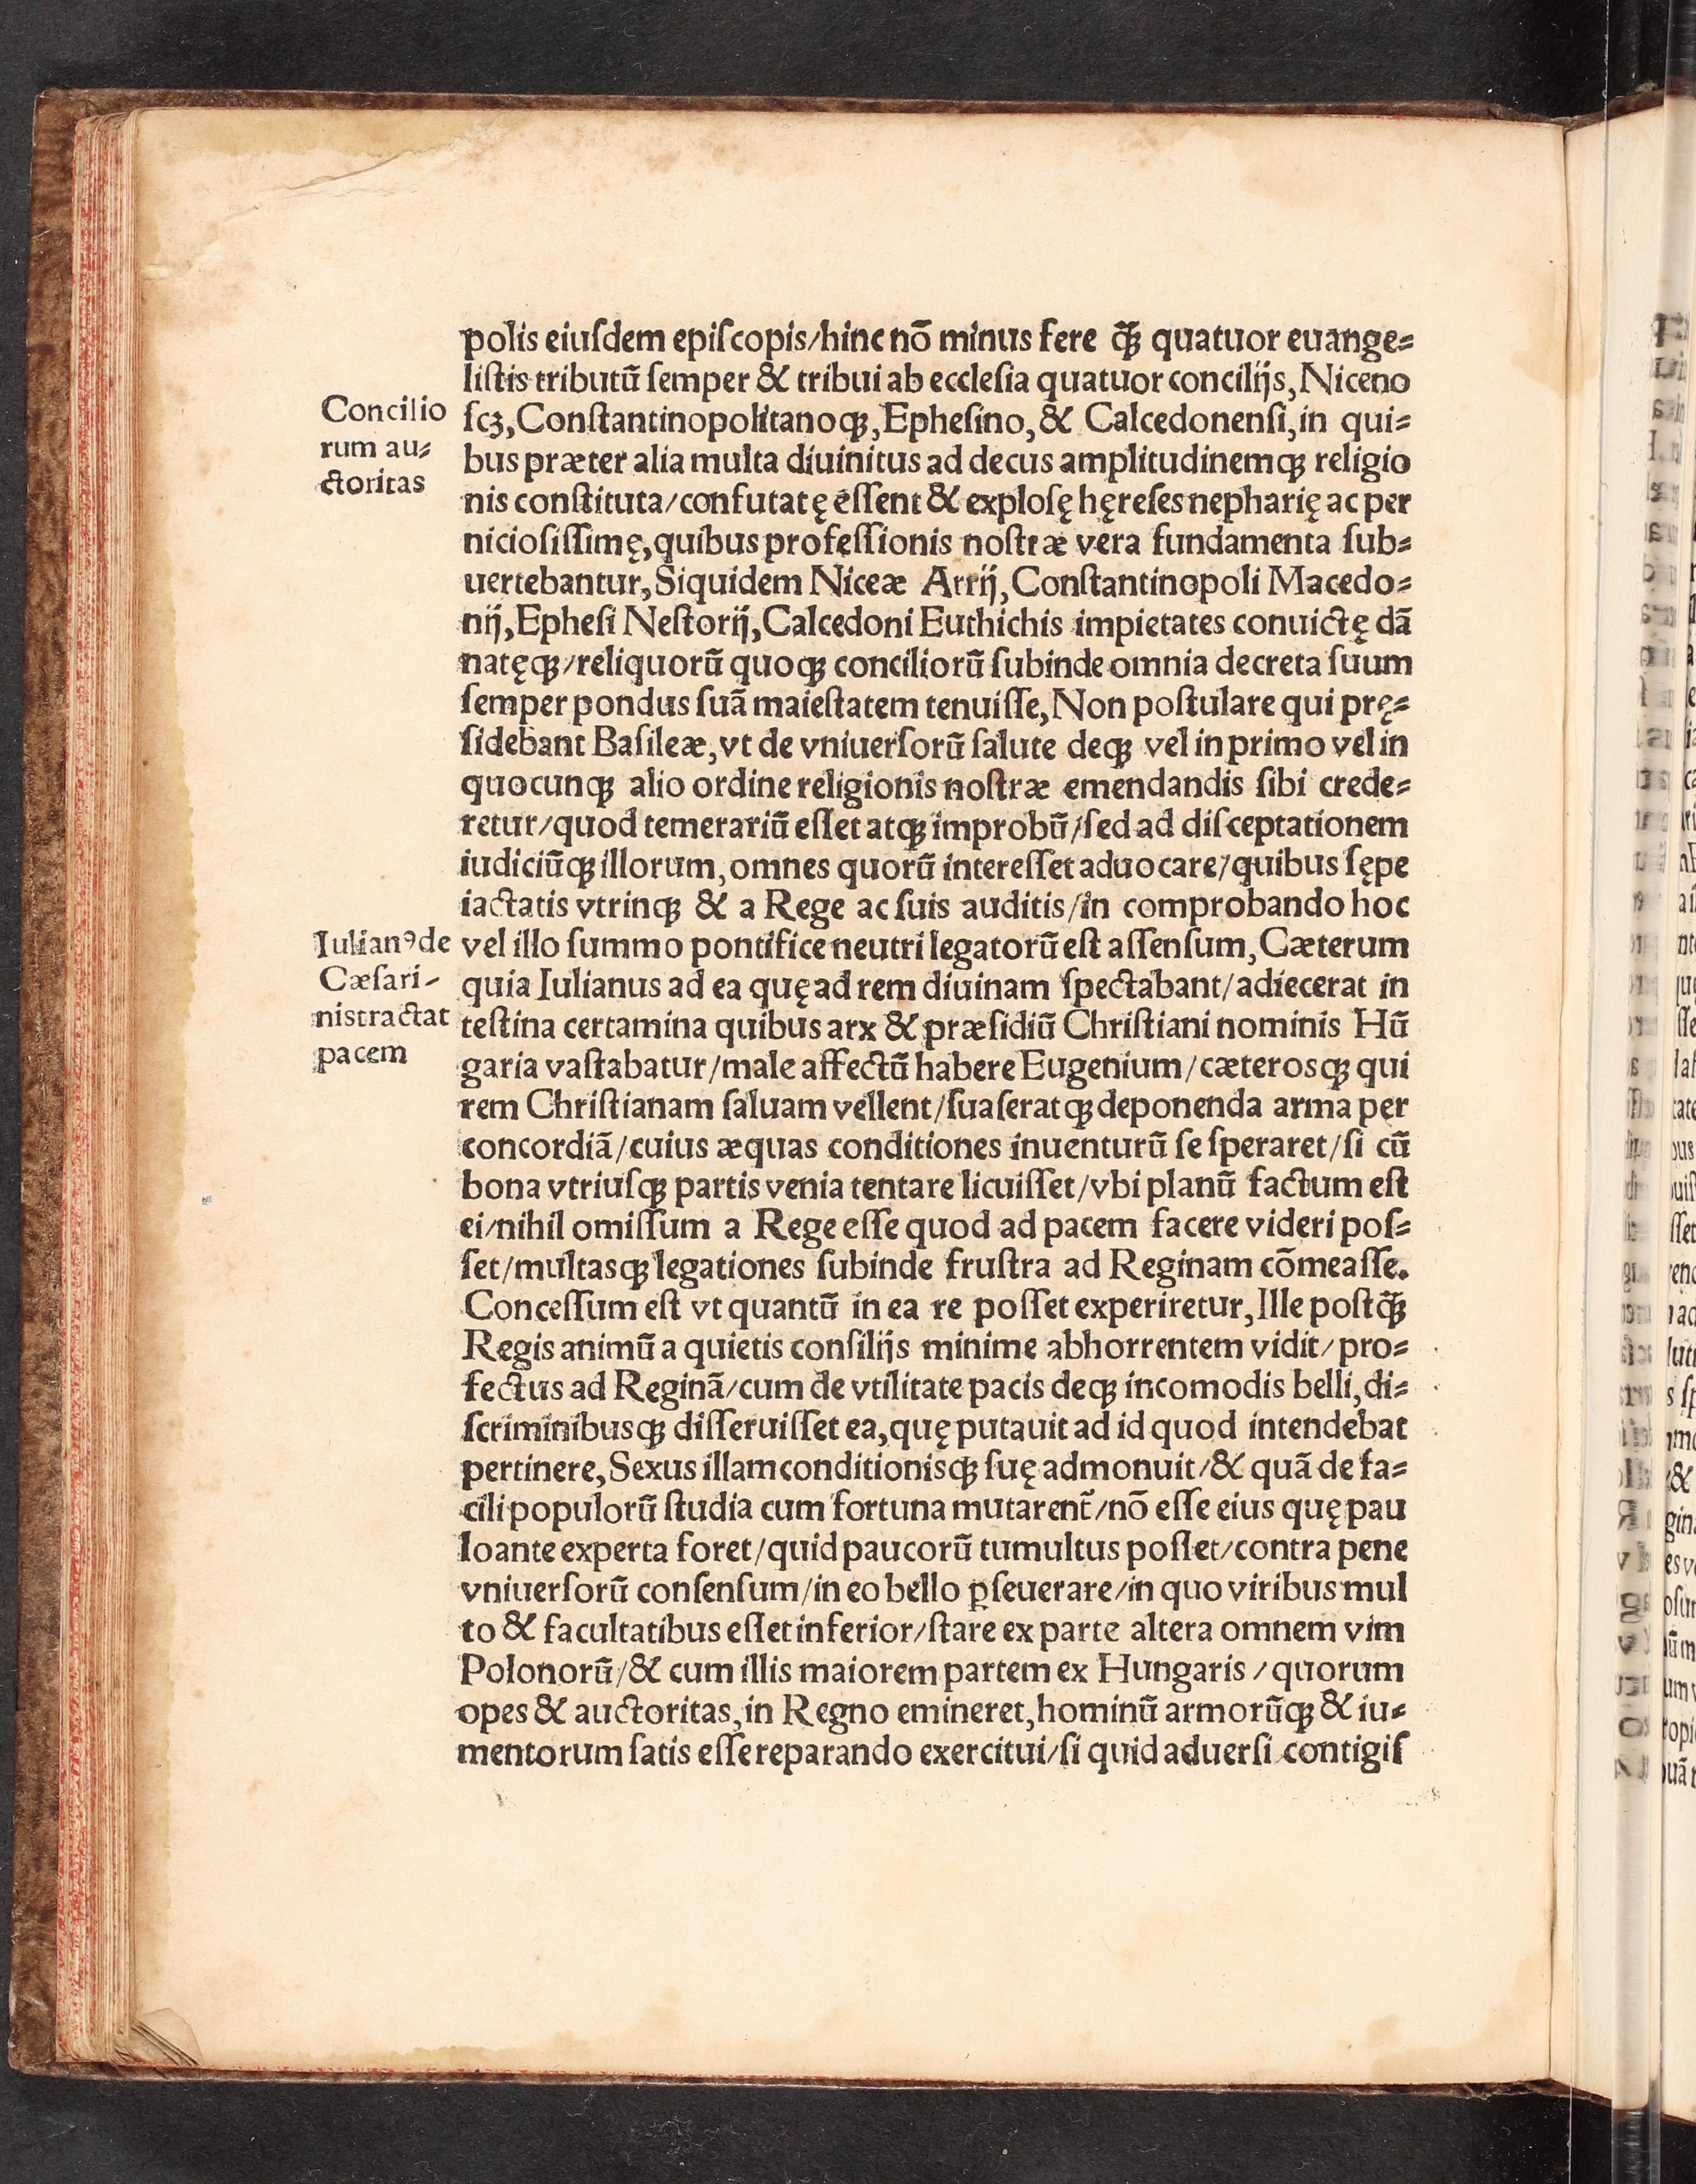 polis eiuſdem epiſcopis/hinc nō minus fere q̄ꝫ quatuor euange⸗
liſtis tributū ſemper & tribui ab eccleſia quatuor concilijs, Niceno
Concilio
rum au⸗
ctoritas
ſcꝫ, Conſtantinopolitanoqꝫ, Epheſino, & Calcedonenſi, in qui⸗
bus præter alia multa diuinitus ad decus amplitudinemqꝫ religio
nis conſtituta/confutatę eſſent & exploſę hęreſes nepharię ac per
nicioſiſſimę, quibus profeſſionis noſtræ vera fundamenta ſub⸗
uertebantur, Siquidem Niceæ Arrij, Conſtantinopoli Macedo⸗
nij, Epheſi Neſtorij, Calcedoni Euthichis impietates conuictę dā
natęqꝫ/reliquorū quoqꝫ conciliorū ſubinde omnia decreta ſuum
ſemper pondus ſuā maieſtatem tenuiſſe, Non poſtulare qui prę⸗
ſidebant Baſileæ, vt de vniuerſorū ſalute deqꝫ vel in primo vel in
quocunqꝫ alio ordine religionis noſtræ emendandis ſibi crede⸗
retur/quod temerariū eſſet atqꝫ improbū/ſed ad diſceptationem
iudiciūqꝫ illorum, omnes quorū intereſſet aduocare/quibus ſępe
iactatis vtrinqꝫ & a Rege ac ſuis auditis/in comprobando hoc
Iulianꝰ de
Cæſari-
nis tractat
pacem
vel illo ſummo pontifice neutri legatorū eſt aſſenſum, Cæterum
quia Iulianus ad ea quę ad rem diuinam ſpectabant/adiecerat in
teſtina certamina quibus arx & præſidiū Chriſtiani nominis Hū
garia vaſtabatur/male affectū habere Eugenium/cæterosqꝫ qui
rem Chriſtianam ſaluam vellent/ſuaſeratqꝫ deponenda arma per
concordiā/cuius æquas conditiones inuenturū ſe ſperaret/ſi cū
bona vtriuſqꝫ partis venia tentare licuiſſet/vbi planū factum eſt
ei/nihil omiſſum a Rege eſſe quod ad pacem facere videri poſ⸗
ſet/multasqꝫ legationes ſubinde fruſtra ad Reginam cōmeaſſe.
Conceſſum eſt vt quantū in ea re poſſet experiretur, Ille poſtq̄ꝫ
Regis animū a quietis conſilijs minime abhorrentem vidit/pro⸗
fectus ad Reginā/cum de vtilitate pacis deqꝫ incomodis belli, di⸗
ſcriminibusqꝫ diſſeruiſſet ea, quę putauit ad id quod intendebat
pertinere, Sexus illam conditionisqꝫ ſuę admonuit/& quā de fa⸗
cili populorū ſtudia cum fortuna mutarent̄/nō eſſe eius quę pau
loante experta foret/quid paucorū tumultus poſſet/contra pene
vniuerſorū conſenſum/in eo bello ꝑſeuerare/in quo viribus mul
to & facultatibus eſſet inferior/ſtare ex parte altera omnem vim
Polonorū/& cum illis maiorem partem ex Hungaris/quorum
opes & auctoritas, in Regno emineret, hominū armorūqꝫ & iu⸗
mentorum ſatis eſſe reparando exercitui/ſi quid aduerſi contigiſ